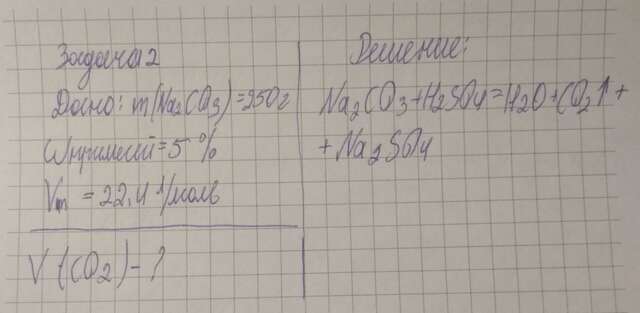 Задача 2
Дано: m(Na2CO3)=250г
Wпримесей=5%
Vm = 22,4 л/моль
V (CO2) - ?
Решение:
Na2CO3+H2SO4=H2O+CO2↑+
+Na2SO4